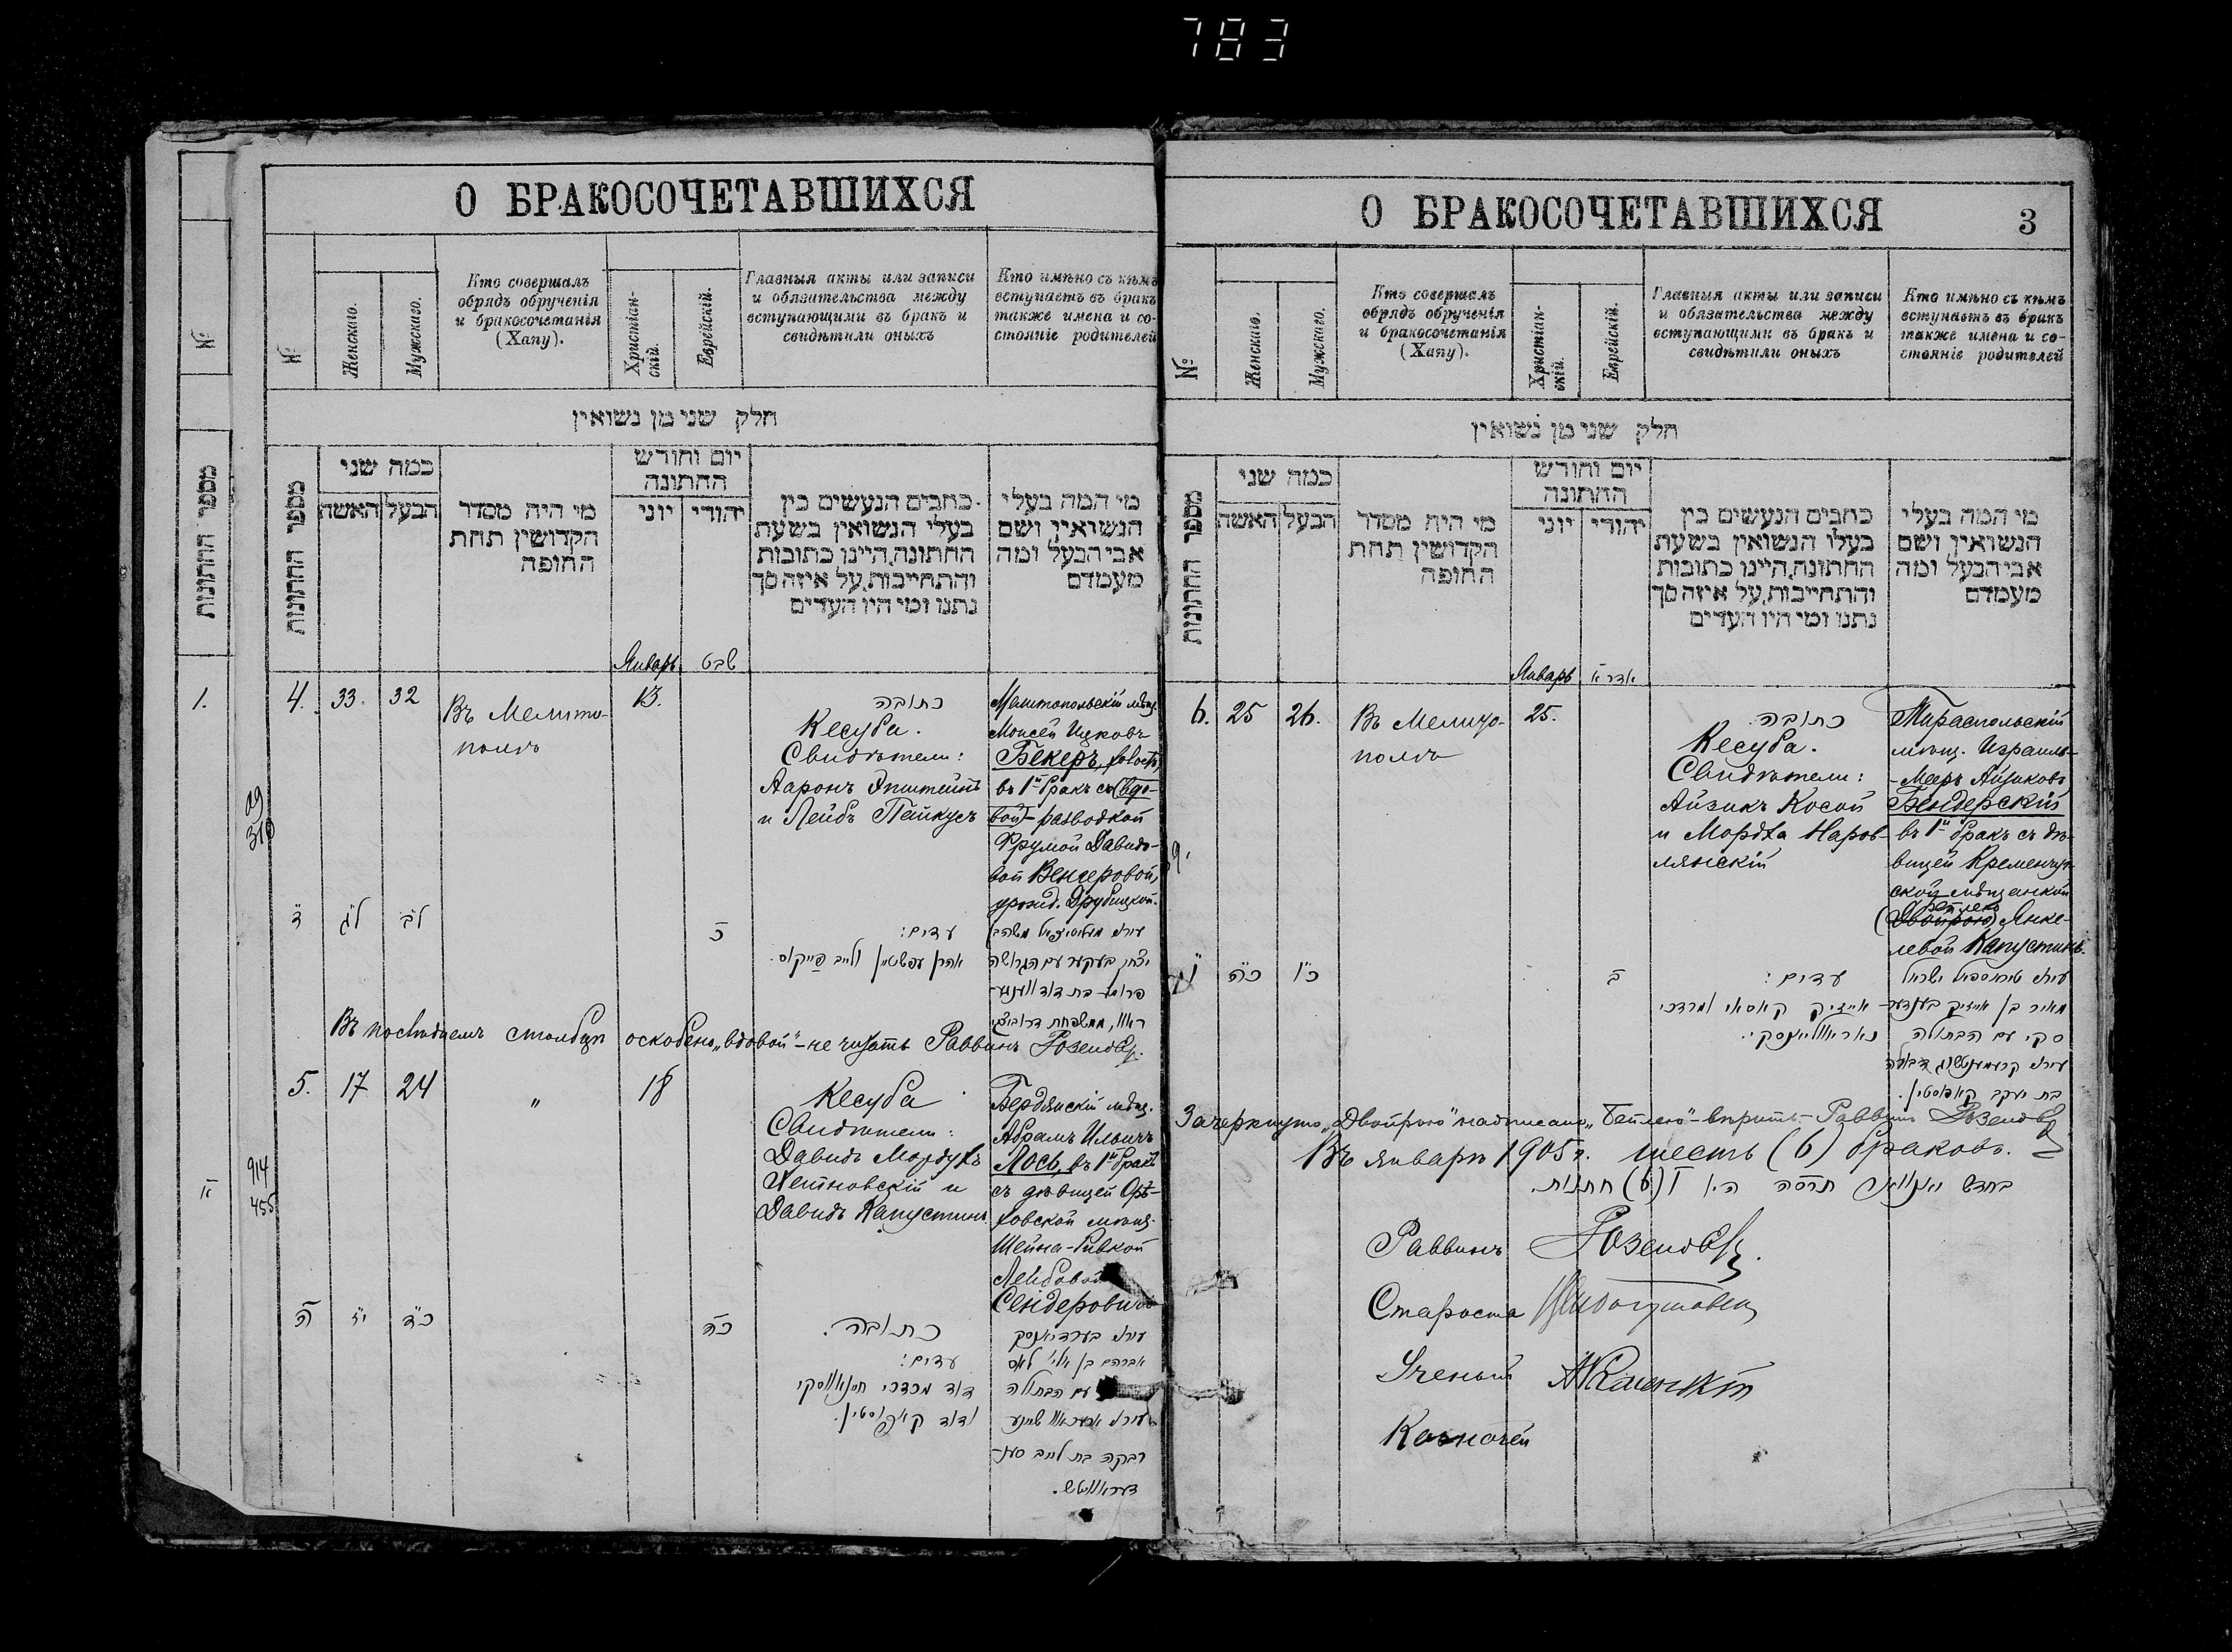 783
О БРАКОСОЧЕТАВШИХСЯ
№
№
Женскаго.
Мужскаго.
Кто совершалъ
обрядъ обрученія
и бракосочетанія
(Хапу).
Христіан-
скій.
Еврейскій.
Главныя акты или записи
и обязательства между
вступающими въ бракъ и
свидѣтили оныхъ
Кто имѣно съ кѣмъ
вступаетъ въ бракъ
также имена и со-
стояніе родителей
חלק שני מן נשואין
מספר החתונות
מספר החתונות
כמה שני
האשה
הבעל
מי היה מסדר
הקדושין תחת
החופה
יום וחודש
החתונה
יוני
יהודי
כתבים הנעשים בין
בעלי הנשואין בשעת
החתונה, היינו כתובות
והתחייבות, על איזה סך
נתנו ומי היו העדים
מי המה בעלי
הנשואין ושם
אבי הבעל ומה
מעמדם
Январь
שבט
1.
4.
33.
32
Въ Мелито-
полѣ
13.
כתובה
Кесуба.
Свидѣтели:
Ааронъ Эпштейнъ
и Лейбъ Пайкусъ
Мелитопольскій мѣщ.
Моисей Ицковъ
Бекеръ, холостъ,
въ 1й бракъ съ (вдо-
вой) - разводкой
Фрумой Давидо-
вой Венгеровой,
урожд. Друбицкой.
ד
לג
לב
כ
עדים:
אהרן עפשטיין ולייב פייקוס.
יצחק בעקער עם הגרושה
פרומע בת דוד ווענגע-
ראוו, ממשפחת דרוביצקי
Въ послѣднемъ столбцѣ оскоблено „вдовой" - не читать Раввинъ
5.
17
24
"
18
Кесуба
Свидѣтели:
Давидъ Мордухъ
и
Давидъ Капустинъ
Бердянскій мѣщ.
Абрамъ Ильичъ
Лось, въ 1й бракъ
съ дѣвицей Орѣ-
ховской мѣщ.
Шейна-Ривкой
Лейбовой
Сендеровичъ
ה
יז
כד
כה
כתובה.
עדים:
דוד מרדכי
ודוד קאפוסטין.
עירא בערדיאנסק
אברהם בן אלי' לאס
עם הבתולה
רבקה בת לייב סענ-
דעראוויטש.
914
455
О БРАКОСОЧЕТАВШИХСЯ
3
№
Женскаго.
Мужскаго.
Кто совершалъ
обрядъ обрученія
и бракосочетанія
(Хапу).
Христіан-
скій.
Еврейскій.
Главныя акты или записи
и обязательства между
вступающими въ бракъ и
свидѣтили оныхъ
Кто имѣно съ кѣмъ
вступаетъ въ бракъ
также имена и со-
стояніе родителей
חלק שני מן נשואין
מספר החתונות
כמה שני
האשה
הבעל
מי היה מסדר
הקדושין תחת
החופה
יום וחודש
החתונה
יוני
יהודי
כתבים הנעשים בין
בעלו הנשואין בשעת
החתונה, היינו כתובות
והתחייבות, על איזה סך
נתנו ומי היו העדים
מי המה בעלי
הנשואין ושם
אבי הבעל ומה
מעמדם
Январь
אדר א
6.
25
26.
Въ Мелито-
полѣ
25.
כתובה.
Кесуба.
Свидѣтели:
Айзикъ Косой
и Мордха Наров-
лянскій
Тираспольскій
мѣщ. Израиль-
-Меръ Айзиковъ
Бендерскій
въ 1й бракъ съ дѣ-
вицей Кременчуг-
ской мѣщанкой
Бейлею
(Двойрою) Янке-
левой Капустинъ.
כה
כו
עדים:
אייזיק קאסאי ומרדכי
נאראוולאנסקי.
עירא טיראספאל ישראל
מאיר בן אייזיק בענדער-
סקי עם הבתולה
בת יעקב קאפוסטין.
Зачеркнуто „Двойрою" надписано „Бейлею" - вѣрить. Раввинъ
Въ январѣ 1905 г. шесть (6) браковъ.
בחדש יאנואר תרסה היו ו (6) חתונות.
Раввинъ
Староста
Ученый
Казначей